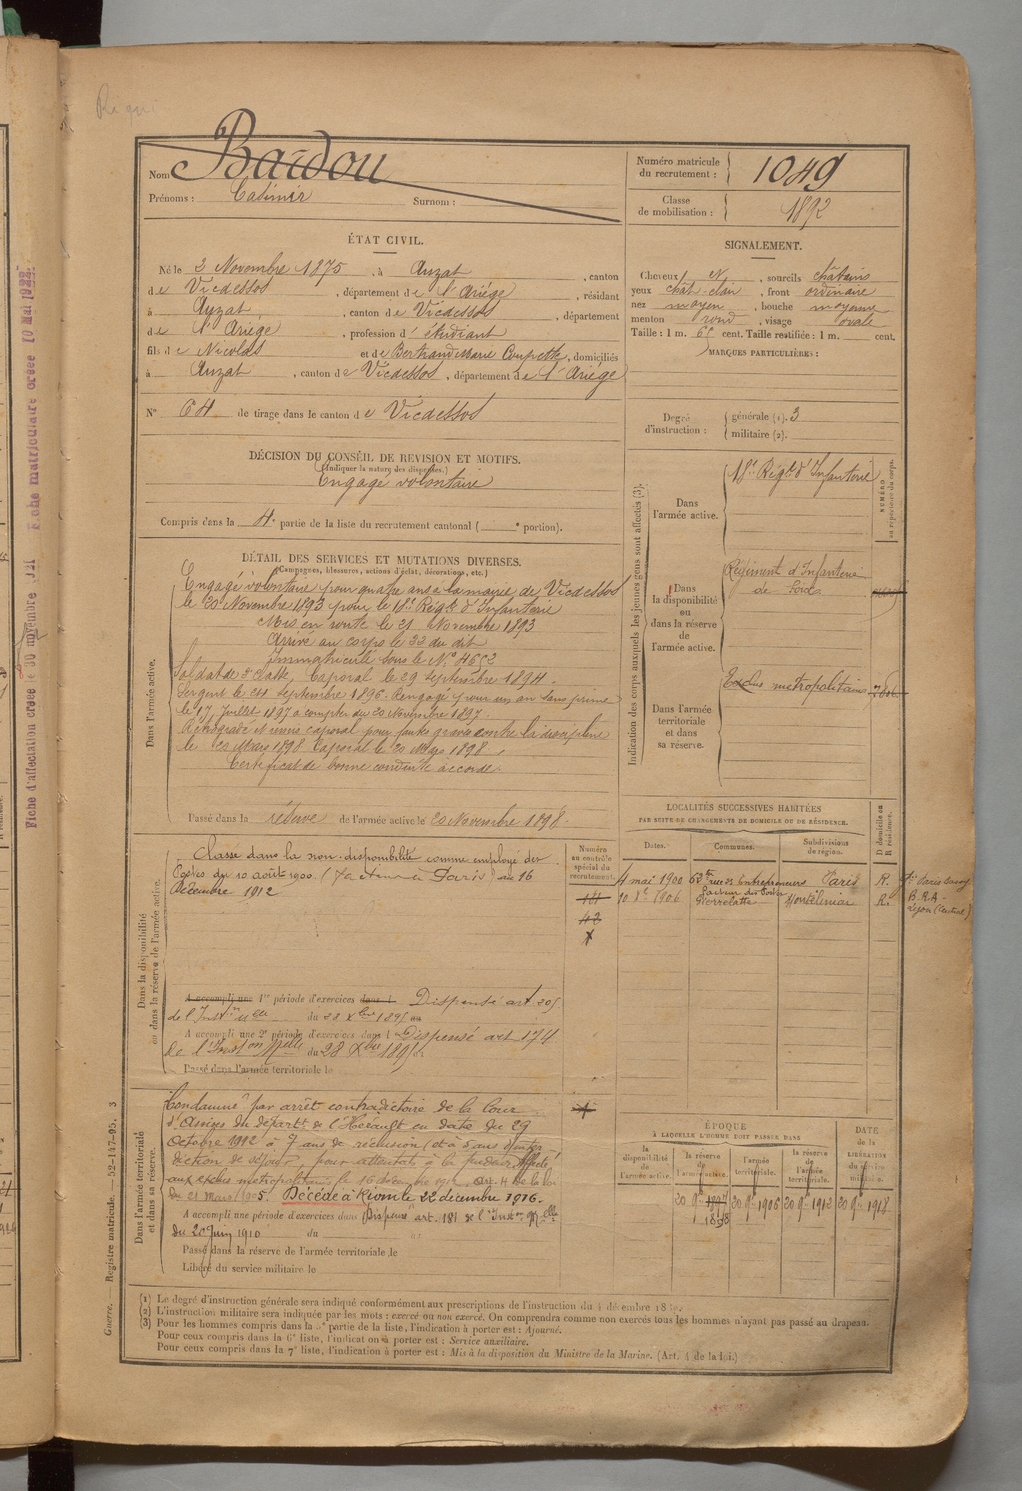 Bardou
Nom
Prénoms : Casimir Surnom :
Numéro matricule
du recrutement : 1049
Classe
de mobilisation : 1892
ÉTAT CIVIL.
Né le 3 Novembre 1875, à Auzat, canton
de Vicdessos, département de l'Ariège, résidant
à Auzat, canton de Vicdessos, département
de l'Ariège, profession d'étudiant
fils de Nicolas et de Bertrand Marie, domiciliés
à Auzat, canton de Vicdessos, département de l'Ariège
SIGNALEMENT.
Cheveux et, sourcils châtains
yeux chât-clair, front ordinaire
nez moyen, bouche moyenne
menton rond, visage ovale
Taille : 1 m. cent. Taille rectifiée : 1 m. cent.
MARQUES PARTICULIÈRES :
N° 64 de tirage dans le canton de Vicdessos
Degré
d'instruction : générale (1). 3
militaire (2).
DÉCISION DU CONSEIL DE REVISION ET MOTIFS.
(Indiquer la nature des dispenses.)
Engagé volontaire
Compris dans la 4e partie de la liste du recrutement cantonal ( e portion).
Indication des corps auxquels les jeunes gens sont affectés (3).
NUMÉRO
au répertoire du corps.
Dans
l'armée active.
18e Régt d'Infanterie
Dans
la disponibilité
ou
dans la réserve
de l'armée active.
Régiment d'Infanterie
de
Dans l'armée
territoriale
et dans
sa réserve.
Exclus métropolitains
DÉTAIL DES SERVICES ET MUTATIONS DIVERSES.
(Campagnes, blessures, actions d'éclat, décorations, etc.)
Dans l'armée active.
Engagé volontaire pour quatre ans à la mairie de Vicdessos
le 20 Novembre 1893 pour le 18e Régt d'Infanterie
Mis en route le 21 Novembre 1893
Arrivé au corps le 23 du dit
Immatriculé sous le N° 4652
Soldat de 2e classe, Caporal le 29 septembre 1894.
Sergent le 24 septembre 1896. Rengagé pour un an sans prime
le 17 Juillet 1897 à compter du 20 Novembre 1897.
Rétrogradé et remis caporal pour faute grave contre la discipline
le 20 Mars 1898. Caporal le 20 Mars 1898.
Certificat de bonne conduite accordé.
Passé dans la réserve de l'armée active le 20 Novembre 1898.
Dans la disponibilité
ou dans la réserve de l'armée active.
Classé dans la non-disponibilité comme employé des
Postes du 10 août 1900 (facteur à Paris) au 16
Décembre 1912
A accompli une 1re période d'exercices dans l Dispensé art. 205
de l'Inston elle du 28 Xbre 1895 au
A accompli une 2e période d'exercices dans l Dispensé art 174
de l'Inston Melle du 28 Xbre 1895 au
Passé dans l'armée territoriale le
Numéro
au contrôle
spécial du
recrutement.
LOCALITÉS SUCCESSIVES HABITÉES
PAR SUITE DE CHANGEMENTS DE DOMICILE OU DE RÉSIDENCE.
Dates. Communes. Subdivisions
de région. D domicile ou
R résidence.
4 mai 1900 62 rue des Entrepreneurs Paris R.
1906 facteur des Postes
Pierrelatte Montélimar R.
B.R.A.
Lyon (Central)
Dans l'armée territoriale
et dans sa réserve.
Condamné par arrêt contradictoire de la Cour
d'Assises du départt de l'Hérault en date du 29
Octobre 1912 à 7 ans de réclusion (et à 5 ans d'inter-
diction de séjour, pour attentats à la pudeur. Affecté
aux exclus métropolitains le 16 décembre 1912. Art. 4 de la loi
du 21 Mars 1905. Décédé à Riom le 22 décembre 1916.
A accompli une période d'exercices dans Dispensé art. 181 de l'Inston Melle
du 20 Juin 1910 du au
Passé dans la réserve de l'armée territoriale le
Libéré du service militaire le
ÉPOQUE
À LAQUELLE L'HOMME DOIT PASSER DANS
la
disponibilité
de l'armée active. la réserve
de
l'armée active. l'armée
territoriale. la réserve
de
l'armée
territoriale. DATE
de la
LIBÉRATION
du service
militaire.
20 9bre 1897
1898 20 9bre 1906 20 9bre 1912 20 9bre 1918
(1) Le degré d'instruction générale sera indiqué conformément aux prescriptions de l'instruction du 4 décembre 18
(2) L'instruction militaire sera indiquée par les mots : exercé ou non exercé. On comprendra comme non exercés tous les hommes n'ayant pas passé au drapeau.
(3) Pour les hommes compris dans la e partie de la liste, l'indication à porter est : Ajourné.
Pour ceux compris dans la 6e liste, l'indication à porter est : Service auxiliaire.
Pour ceux compris dans la 7e liste, l'indication à porter est : Mis à la disposition du Ministre de la Marine. (Art. 4 de la loi.)
Guerre. — Registre matricule. — 52-147-95. 3
Fiche d'affectation créée le 30 novembre
Fiche matriculaire créée 10 Mai 1922